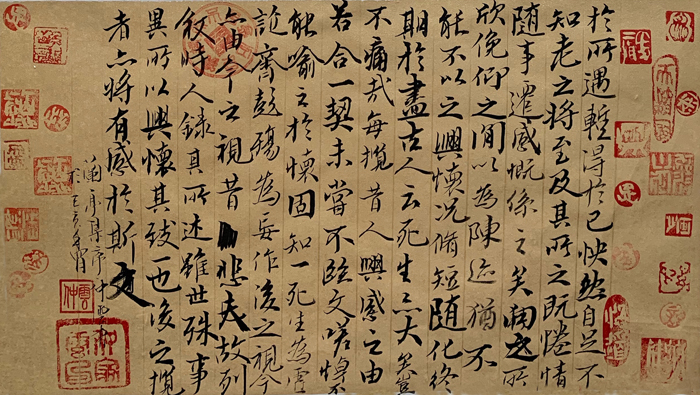 於所遇蹔得於己怏然自足不
知老之將至及其所之既惓情
随事遷感慨係之矣向之所
欣俛仰之間以為陳迹猶不
能不以之興懷況脩短随化終
期於盡古人云死生亦大矣豈
不痛哉每攬昔人興感之由
若合一契未嘗不臨文嗟悼不
能喻之於懷固知一死生為虛
誕齊彭殤為妄作後之視今
亦由今之視昔悲夫故列
敘時人錄其所述雖世殊事
異所以興懷其致一也後之攬
者亦將有感於斯文
蘭亭集序 仲
於己亥年